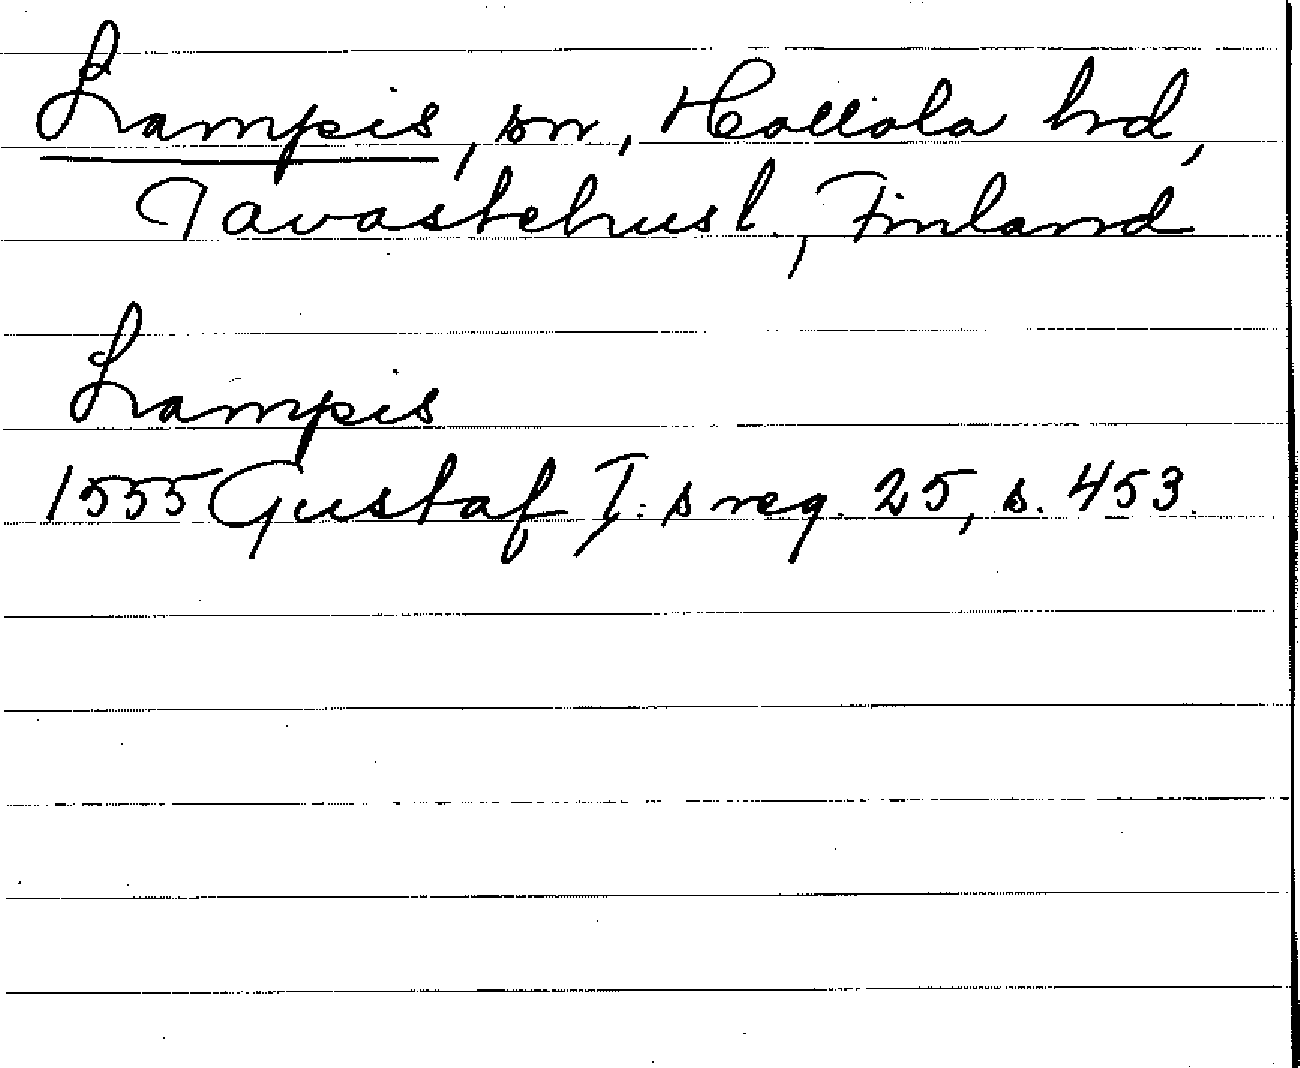 Lampis, sn, Hollola hd,
Tavastehus l., Finland
Lampis
1555 Gustaf I:s reg. 25, s. 453.